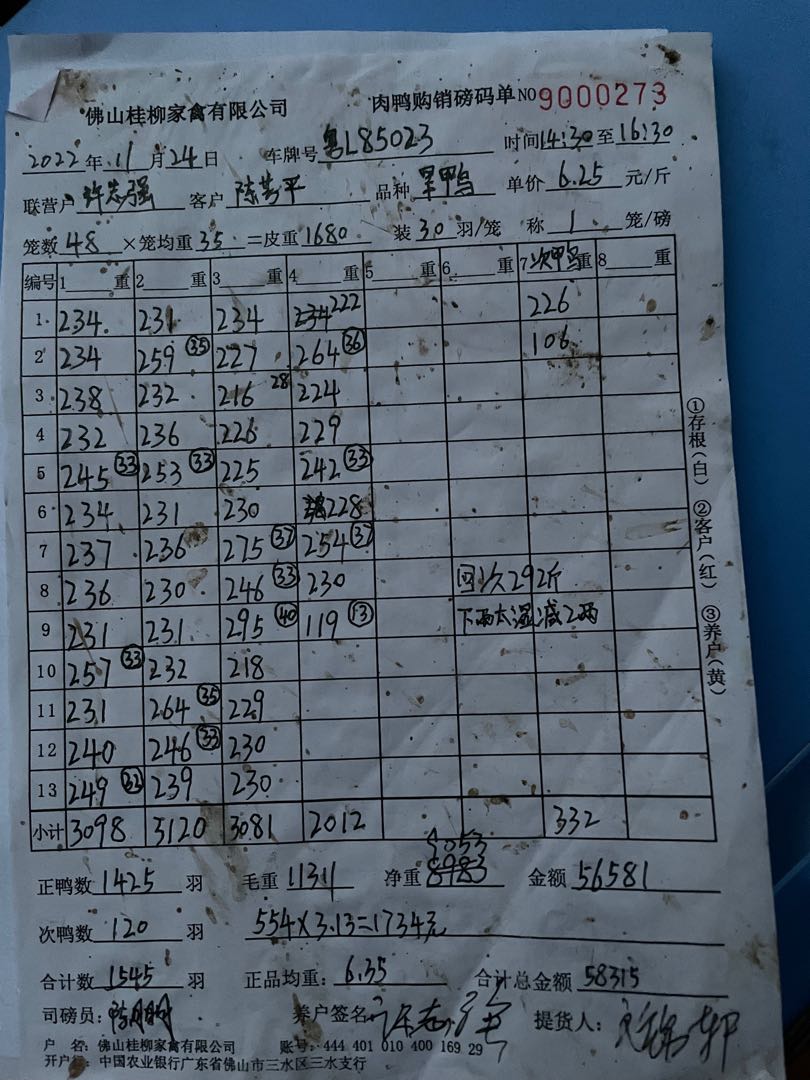 佛山桂柳家禽有限公司 肉鸭购销磅码单 NO 9000273
2022年11月24日 车牌号 粤L85023 时间14:30至16:30
联营户 许志强 客户 陈 平 品种 鸭 单价 6.25 元/斤
笼数 48 ×笼均重 35 =皮重 1680 装 30 羽/笼 称 1 笼/磅
编号 1 重 2 重 3 重 4 重 5 重 6 重 7 次鸭 重 8 重
1 234 231 234 234 222 226
2 234 259 35 227 264 36 106
3 238 232 216 28 224
4 232 236 226 229
5 245 33 253 33 225 242 33
6 234 231 230 228
7 237 236 275 37 254 37
8 236 230 246 33 230 回次292斤
9 231 231 295 40 119 13 下雨太湿减2两
10 257 33 232 218
11 231 264 35 229
12 240 246 33 230
13 249 32 239 230
小计 3098 3120 3081 2012 332
9053
正鸭数 1425 羽 毛重 11311 净重 8983 金额 56581
次鸭数 120 羽 554×3.13=1734元
合计数 1545 羽 正品均重: 6.35 合计总金额 58315
司磅员: 养户签名 许志强 提货人:
户 名: 佛山桂柳家禽有限公司 账号: 444 401 010 400 169 29
开户行: 中国农业银行广东省佛山市三水区三水支行
①存根(白) ②客户(红) ③养户(黄)